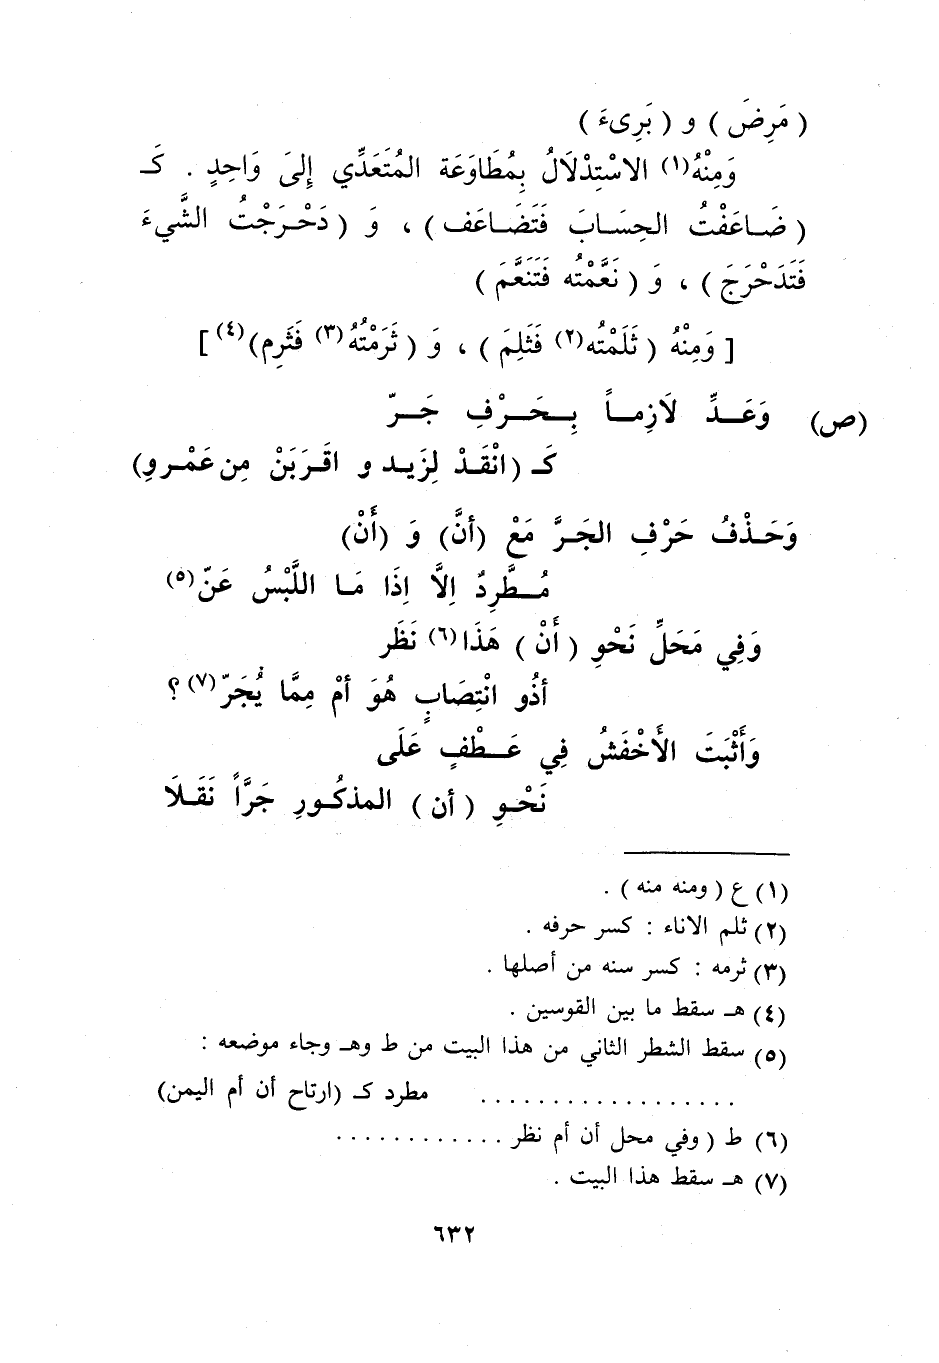 ( مَرِضَ ) و ( بَرِىءَ )
وَمِنْهُ(١) الاسْتِدْلَالُ بِمُطَاوَعَة المُتَعَدِّي إِلىَ وَاحِدٍ . كَـ
( ضَـاعَفْتُ الحِسَـابَ فَتَضَـاعَف ) ، وَ ( دَحْـرَجْتُ الشَّيءَ
فَتَدَحْرَجَ ) ، وَ ( نَعَّمْتُه فَتَنَعَّمَ )
[ وَمِنْهُ ( ثَلَمْتُه(٢) فَثَلِمَ ) ، وَ ( ثَرَمْتُهُ(٣) فَثَرِم)(٤) ]
(ص) وَعَـدِّ لاَزِمـاً بِـحَـرْفِ جَـرّ
كَـ (انْقَـذْ لِزَيـد و اقْـرَبَنْ مِن عَمْـرو)
وَحَـذْفُ حَرْفِ الجَـرِّ مَعْ (أنَّ) وَ (أَنْ)
مُـطَّرِدٌ اِلاَّ اِذَا مَـا اللَّبْسُ عَنّ(٥)
وَفِي مَحَلِّ نَحْوِ ( أَنْ ) هَذَا(٦) نَظَر
أذُو انْتِصَابٍ هُوَ أمْ مِمَّا يُجَرّ(٧) ؟
وَأَثْبَتَ الأَخْفَشُ فِي عَـطْفٍ عَلَى
نَحْـوِ ( أن ) المذكُـورِ جَرَّاً نَقَـلَا
(١) ع ( ومنه منه ) .
(٢) ثلم الاناء : كسر حرفه .
(٣) ثرمه : كسر سنه من أصلها .
(٤) هـ سقط ما بين القوسين .
(٥) سقط الشطر الثاني من هذا البيت من ط وهـ وجاء موضعه :
. . . . . . . . . . . . . . . . . . مطرد كـ (ارتاح أن أم اليمن)
(٦) ط ( وفي محل أن أم نظر . . . . . . . . . . . .
(٧) هـ سقط هذا البيت .
٦٣٢